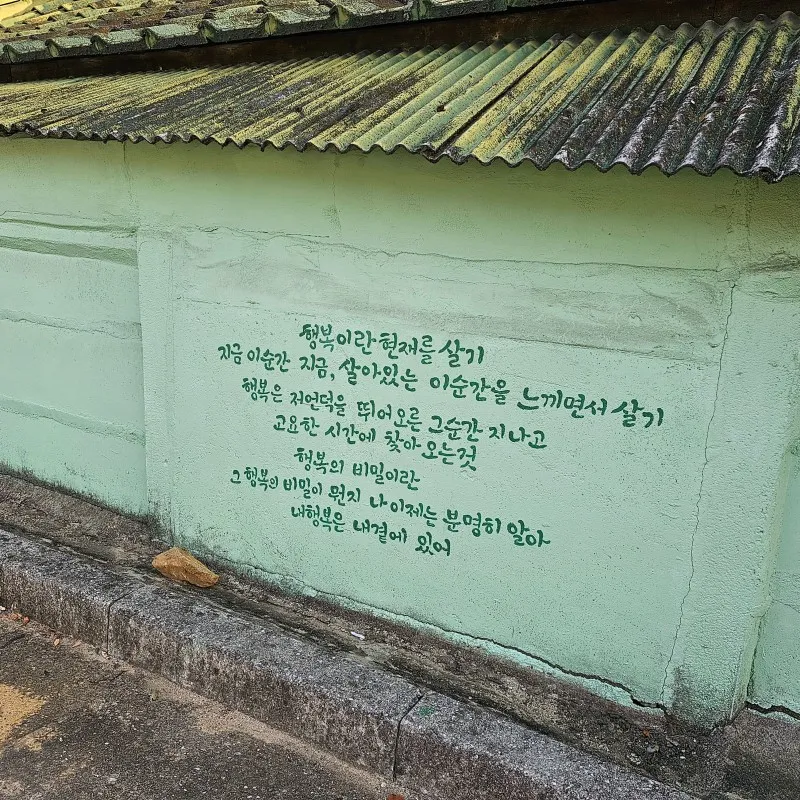 행복이란 현재를 살기
지금 이순간 지금, 살아있는 이순간을 느끼면서 살기
행복은 저언덕을 뛰어오른 그순간 지나고
고요한 시간에 찾아오는것
행복의 비밀이란
그 행복의 비밀이 뭔지 나 이제는 분명히 알아
내행복은 내곁에 있어